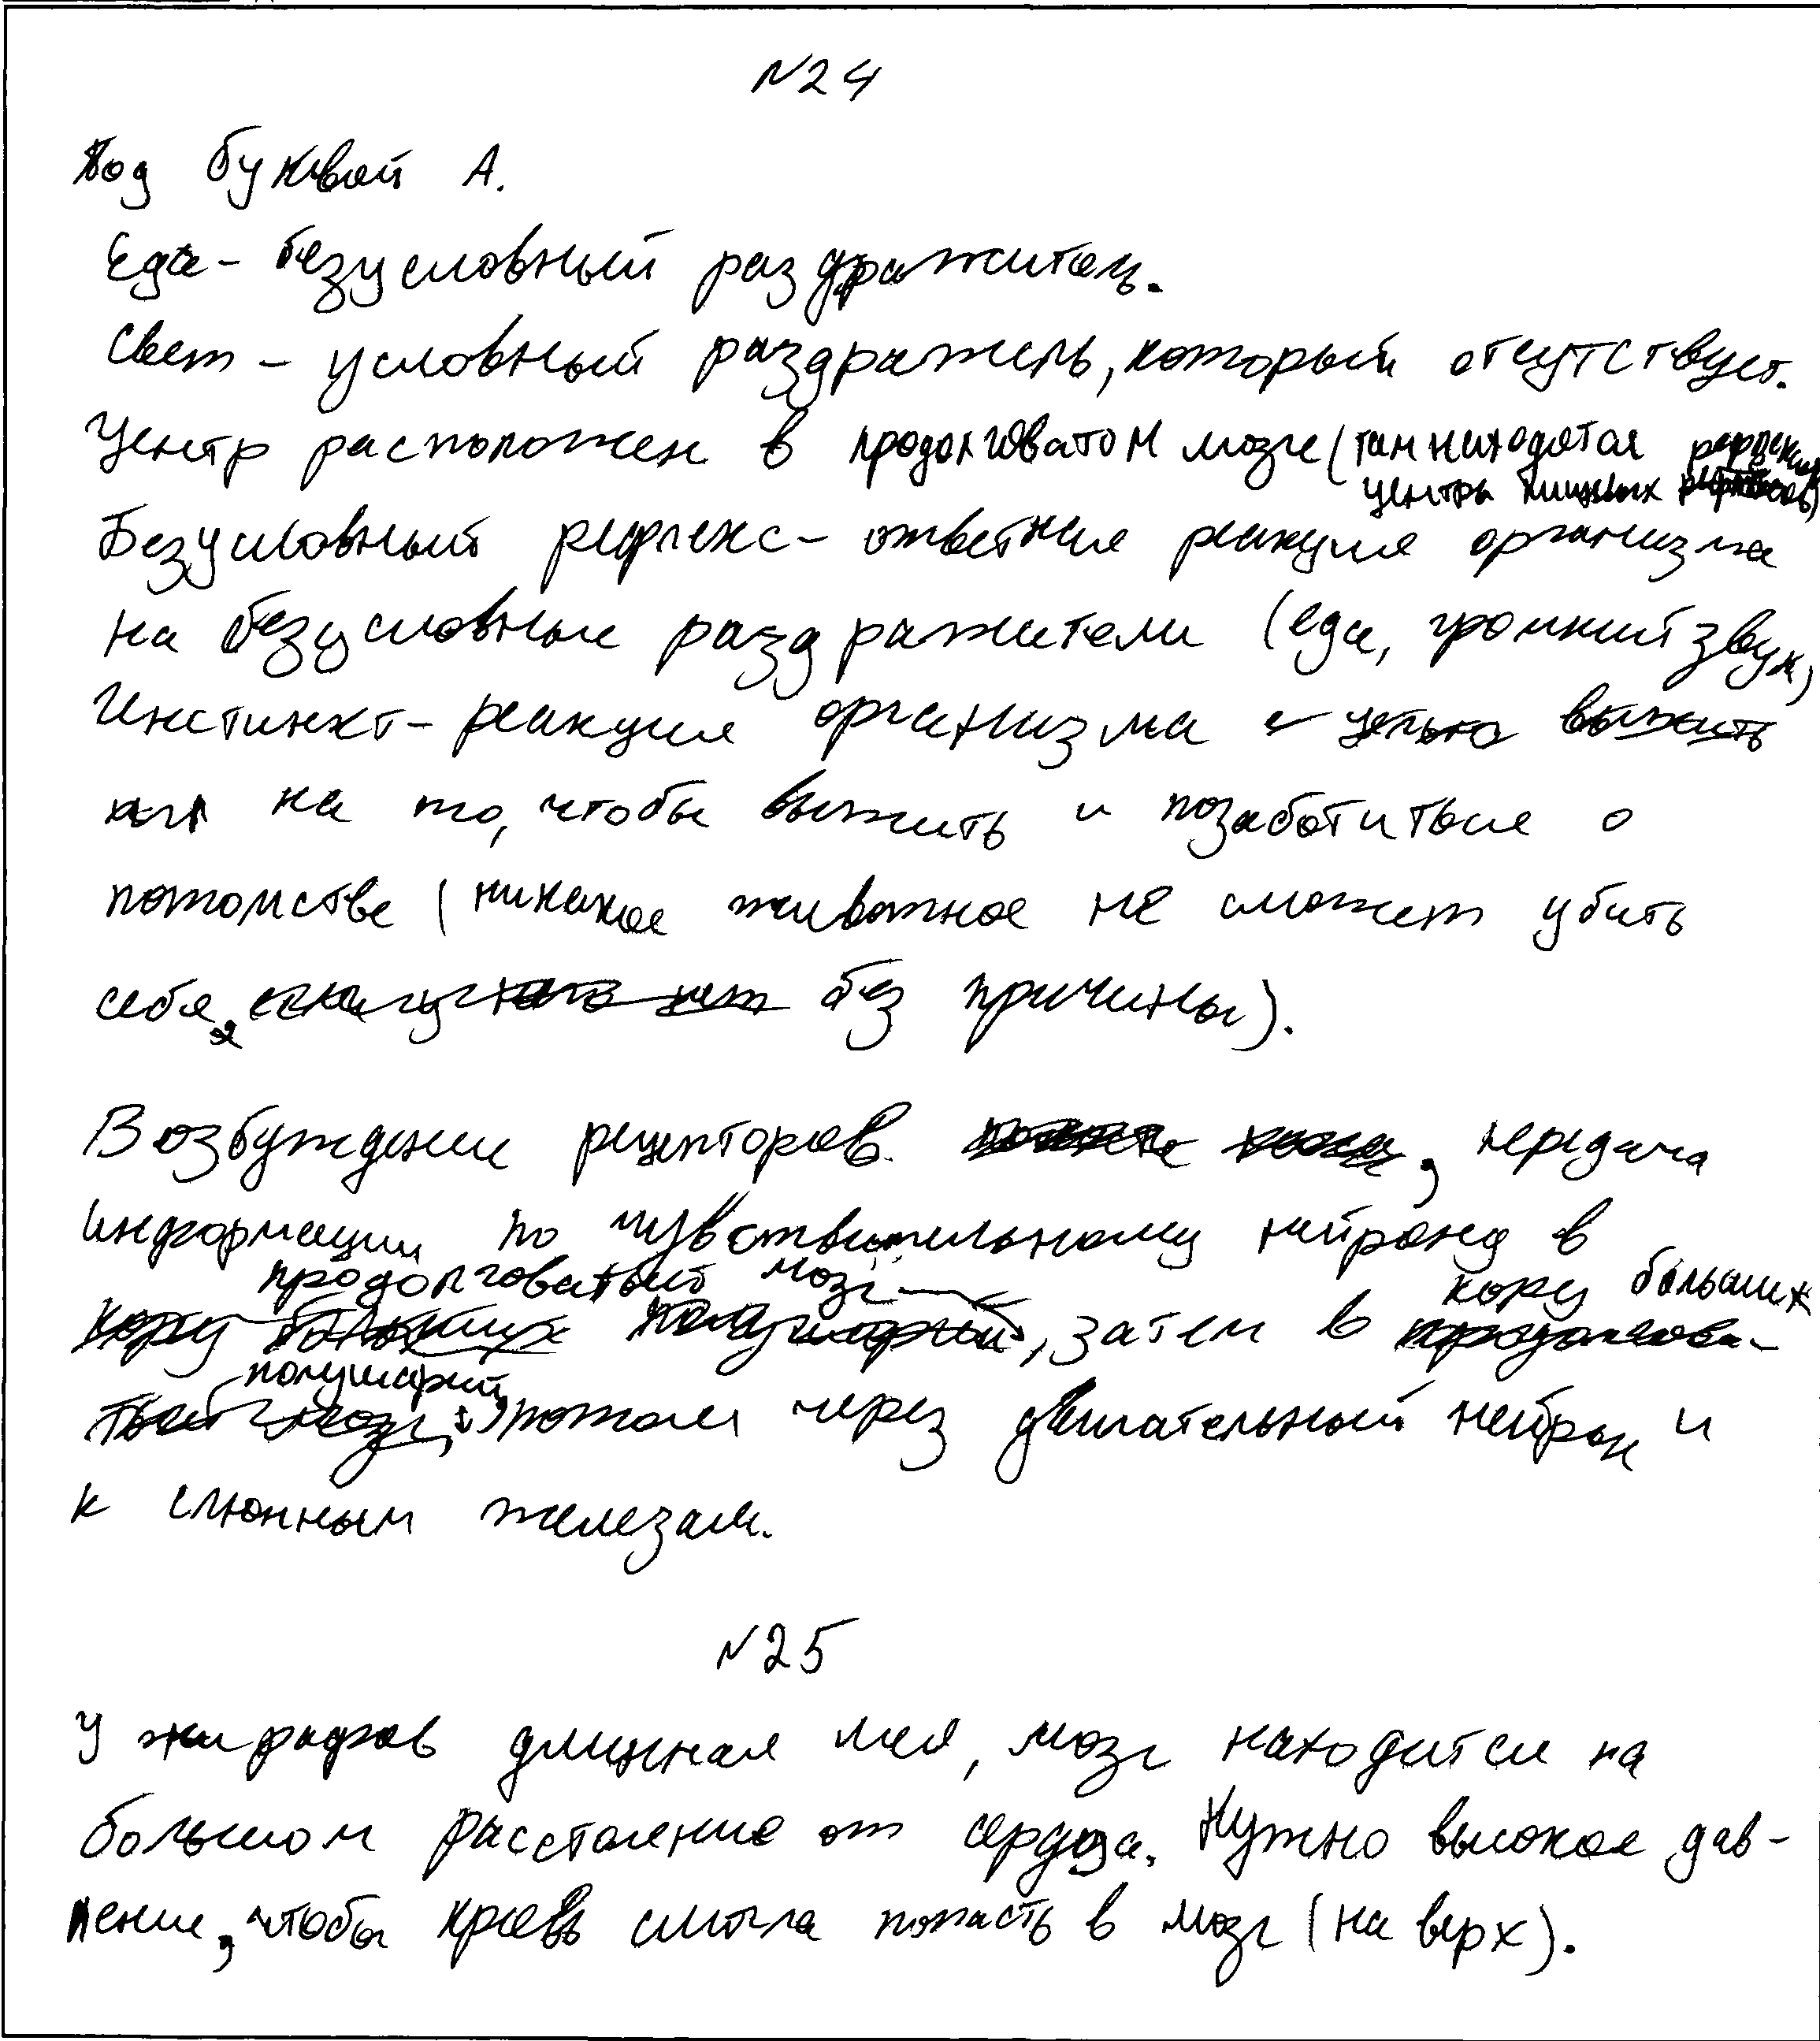 №24
Под буквой А.
Еда - безусловный раздражитель.
Свет - условный раздражель, который отсутствует.
Центр расположен в продолговатом мозге (там находятся
центры пищевых рефлексов)
Безусловный рефлекс - ответная реакция организма
на безусловные раздражители (еда, громкий звук)
Инстинкт - реакция организма с целью выжить
на то, чтобы выжить и позаботиться о
потомстве (никакое животное не сможет убить
себя, без причины).
Возбуждение рецепторов, передача
информации по чувствительному нейрону в
продолговатый мозг кору больших
кору больших полушарий, затем в продолгова-
полушарий
тый мозг, потом через двигательный нейрон и
к слюнным железам.
№25
У жирафов длинная шея, мозг находится на
большом расстояние от сердца. Нужно высокое дав-
ление, чтобы кровь смогла попасть в мозг (на верх).